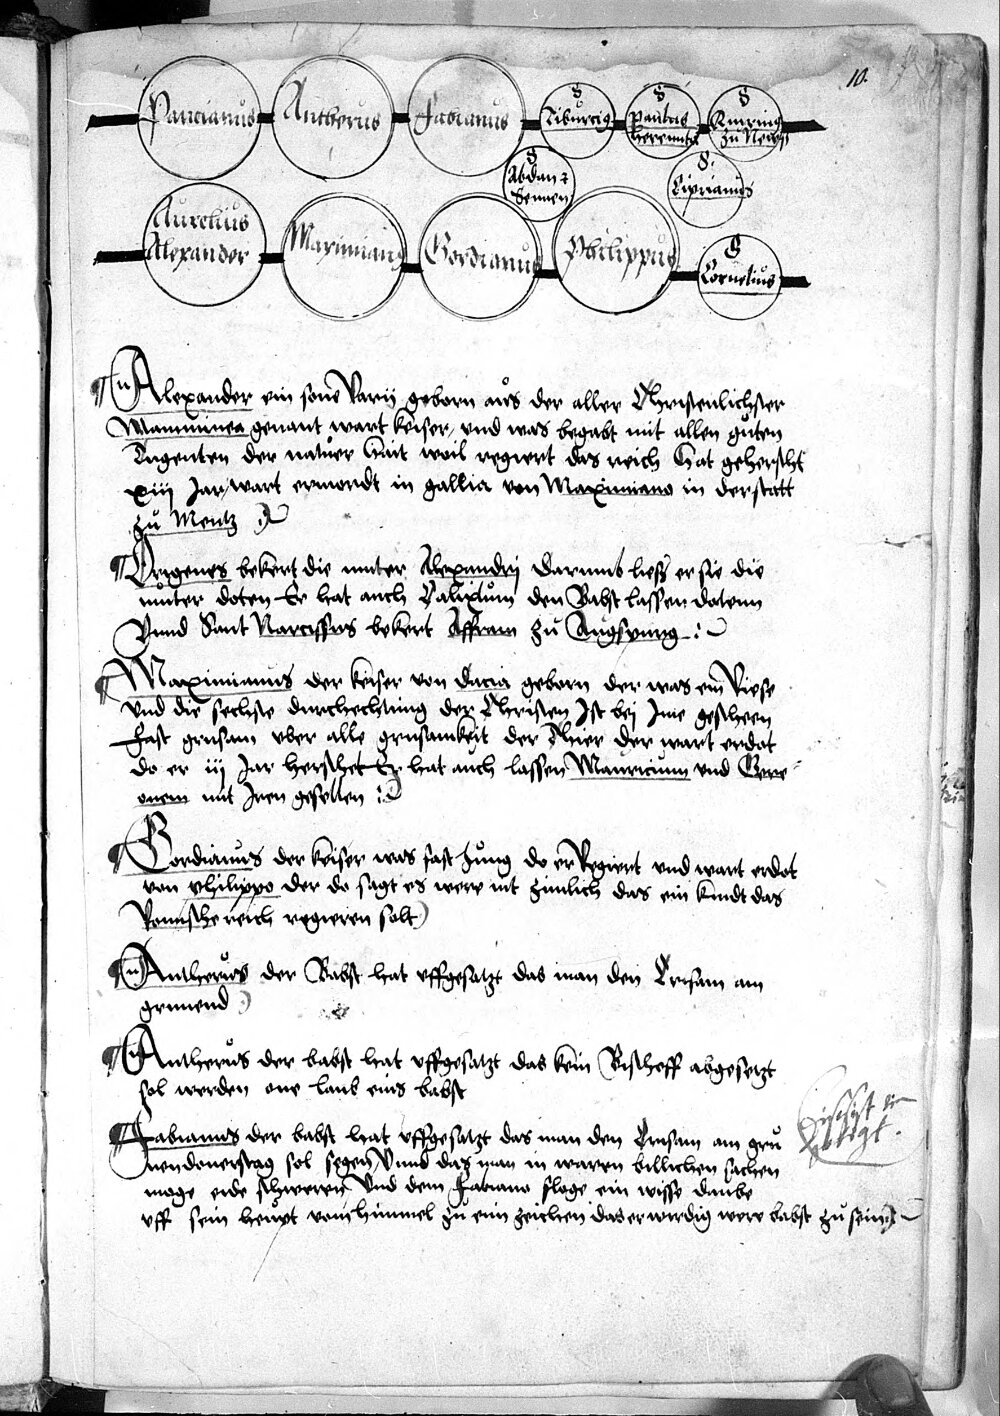 10.
Poncianus Antherus Fabianus S Tiburcius S Paulus heremita S Quirinus zu Neuß
S Abdan Sennen S Ciprianus
Aurelius Alexander Maximianus Gordianus Philippus S Cornelius
Alexander ein sone Varij geborn aus der aller Christenlichster
Mammmea genant wart keiser, vnd was begabt mit allen guten
Tugenten der natuer hait woil regiert das reich hat geherscht
xiij Jar, wart ermordt in gallia von Maximiano in der statt
zu Mentz
Origenes bekert die muter Alexandrij darumb ließ er sie die
muter doten Er hat auch Calixtum den Babst lassen dotenn
Vnnd Sant Narcissus bekert Affram zu Augspurg
Maximianus der keiser von Dacia geborn der was ein Riese
vnd die sechste durchechtung der Christen Ist bei Ime gescheen
fast grusam vber alle grusamkeit der Thier der wart erdot
do er iij Jar herschet Er hat auch lassen Mauricium vnd Gere
onem mit Iren gesellen
Gordianus der keiser was fast Jung do er Regiert vnd wart erdot
von philippo der do sagt es were nit zimlich das ein kindt das
Romische reich regieren solt
Antherus der Babst hat vffgesatzt das man den Crisam am
grunend
Antherus der babst hat vffgesatzt das kein Bischoff abgesetzt
sol werden one laub eins babst
Fabianus der babst hat vffgesatzt das man den Crisam am gru
nendonerstag sol segen, Vnnd das man in waren billichen sachen
moge eide schweren Vnd dem Fabiano floge ein wisse daube
vff sein heupt vom himmel zu eim zeichen das er wirdig were babst zu sein